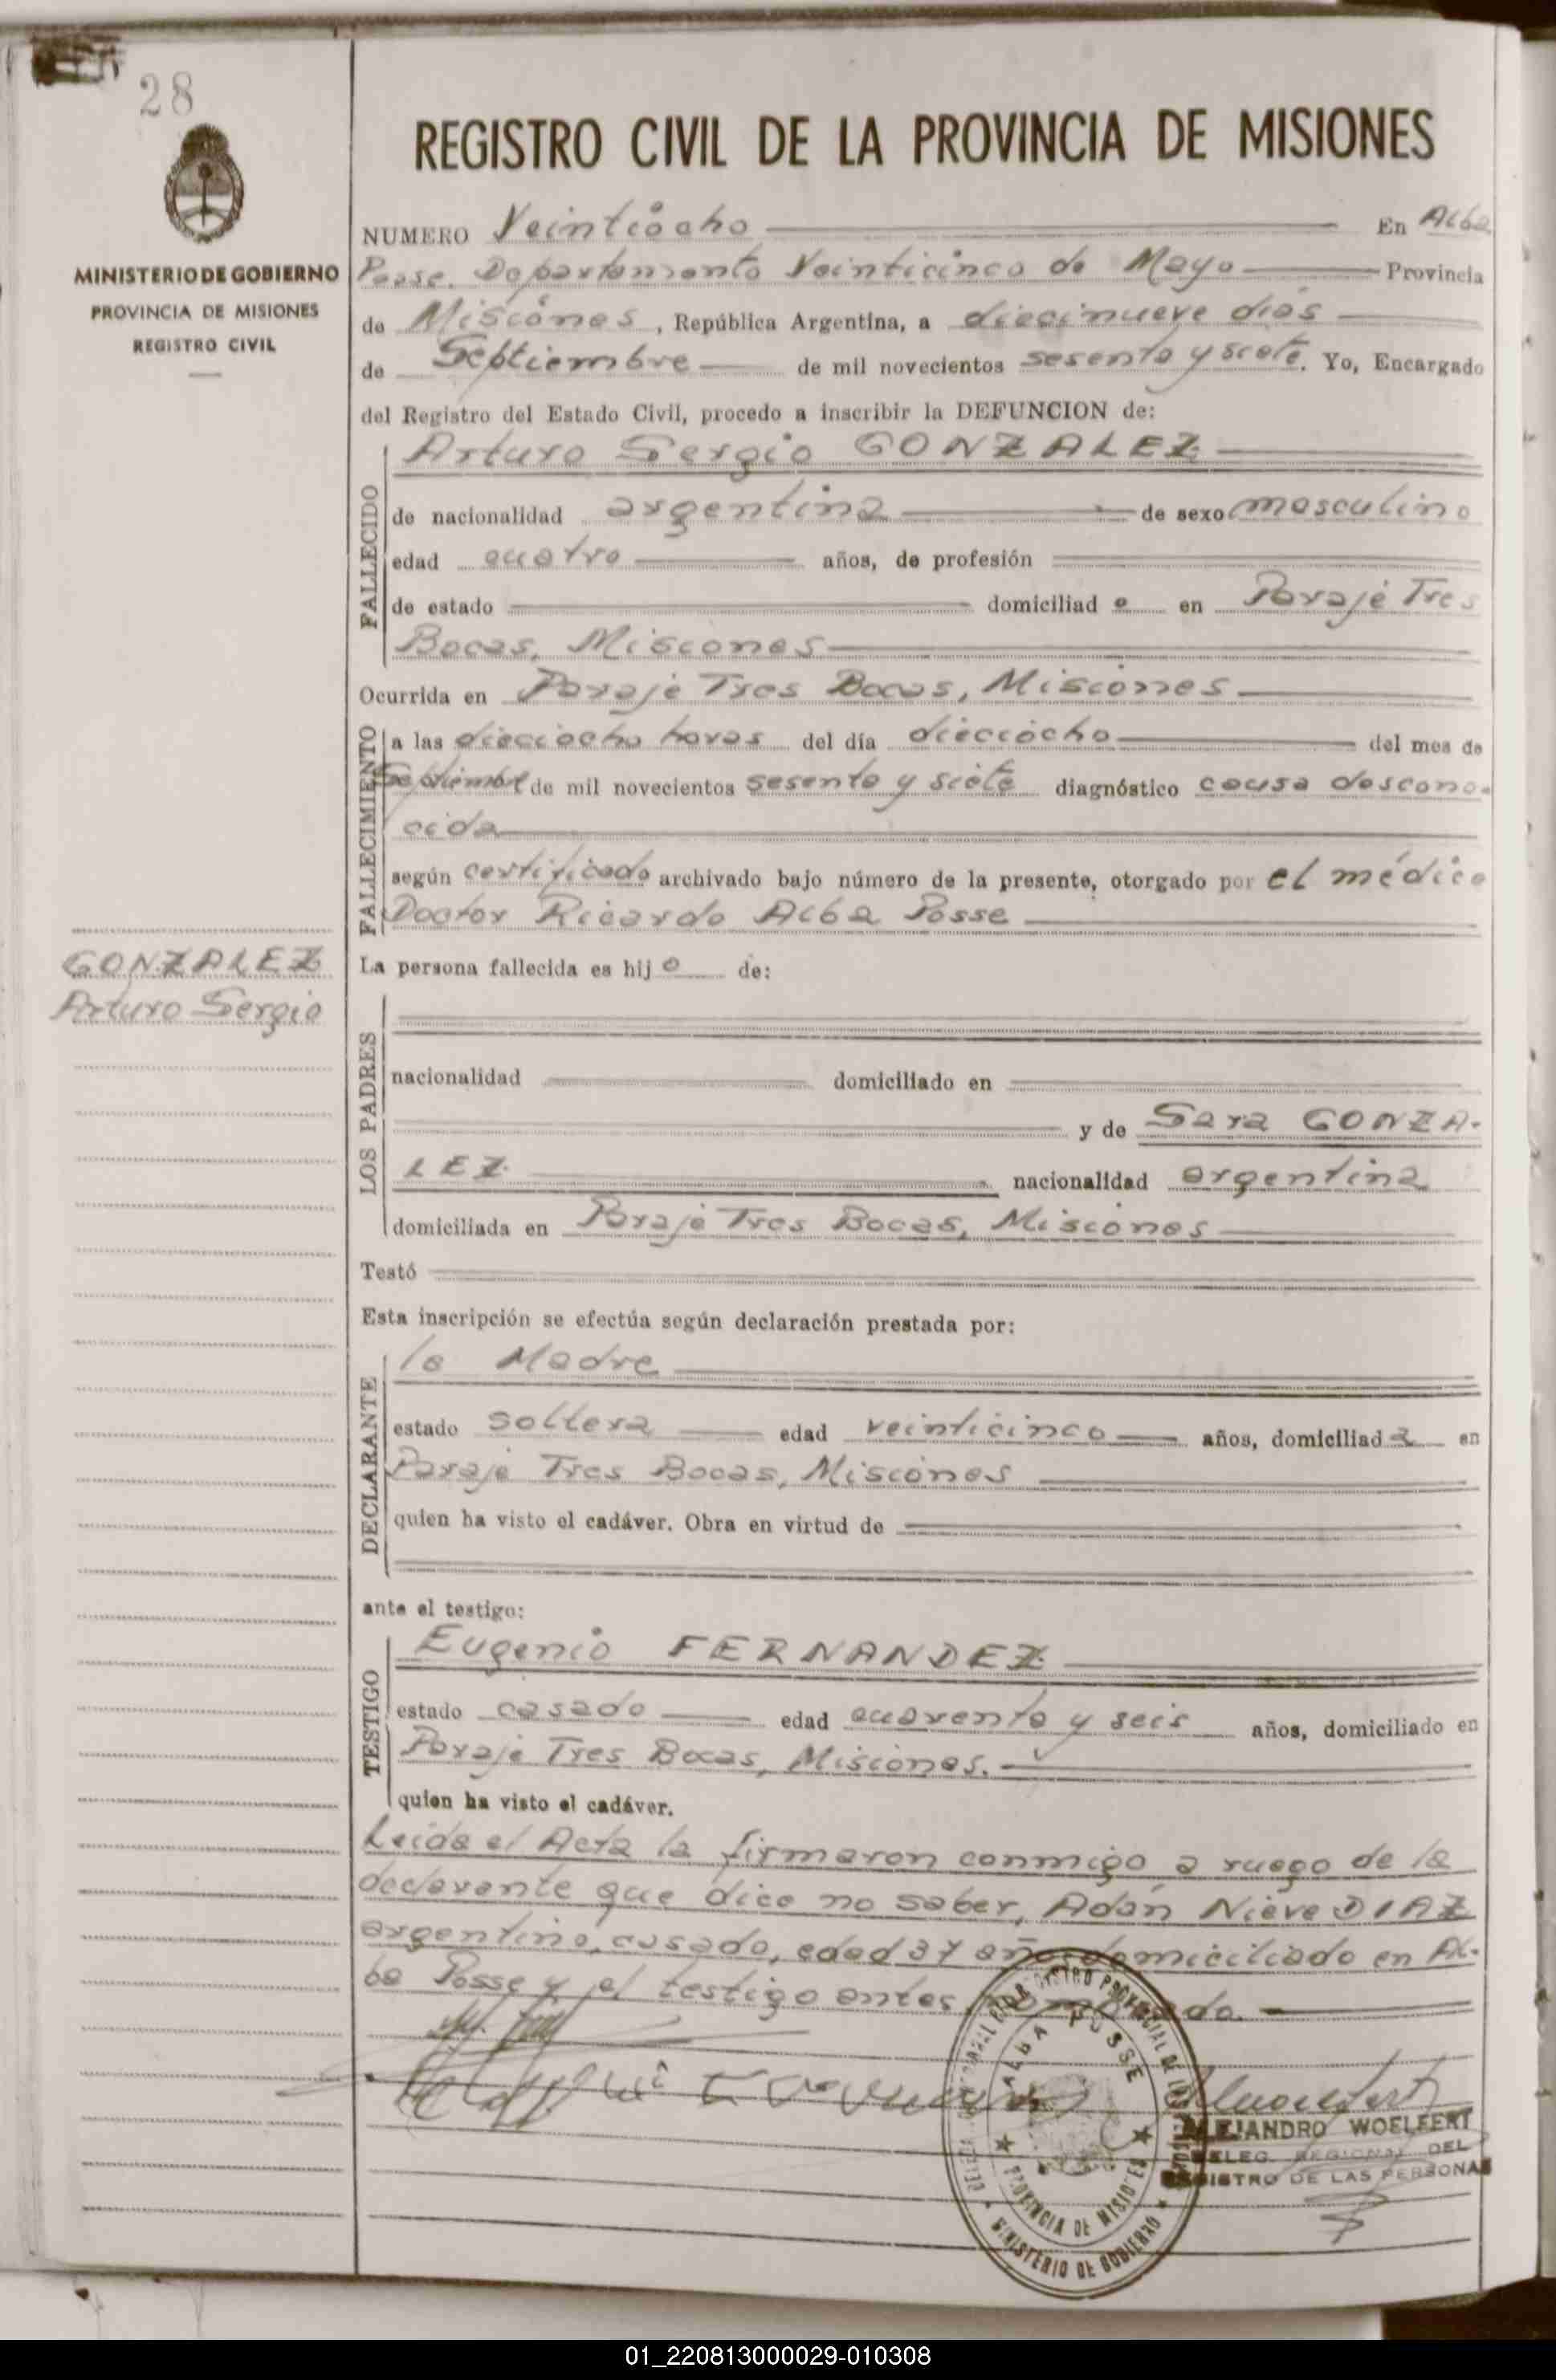 28
MINISTERIO DE GOBIERNO
PROVINCIA DE MISIONES
REGISTRO CIVIL
REGISTRO CIVIL DE LA PROVINCIA DE MISIONES
NUMERO Veintiocho En Alba
Posse. Departamento Veinticinco de Mayo Provincia
de Misiones, República Argentina, a diecinueve días
de Septiembre de mil novecientos sesenta y siete. Yo, Encargado
del Registro del Estado Civil, procedo a inscribir la DEFUNCION de:
FALLECIDO
Arturo Sergio GONZALEZ
de nacionalidad argentina de sexo masculino
edad cuatro años, de profesión
de estado domiciliado en Paraje Tres
Bocas, Misiones
Ocurrida en Paraje Tres Bocas, Misiones
FALLECIMIENTO
a las dieciocho horas del día dieciocho del mes de
Septiembre de mil novecientos sesenta y siete diagnóstico causa descono-
cida
según certificado archivado bajo número de la presente, otorgado por el médico
Doctor Ricardo Alba Posse
GONZALEZ
Arturo Sergio
La persona fallecida es hijo de:
LOS PADRES
nacionalidad domiciliado en
y de Sara GONZA-
LEZ nacionalidad argentina
domiciliada en Paraje Tres Bocas, Misiones
Testó
Esta inscripción se efectúa según declaración prestada por:
DECLARANTE
la Madre
estado soltera edad veinticinco años, domiciliada en
Paraje Tres Bocas, Misiones
quien ha visto el cadáver. Obra en virtud de
ante el testigo:
TESTIGO
Eugenio FERNANDEZ
estado casado edad cuarenta y seis años, domiciliado en
Paraje Tres Bocas, Misiones.
quien ha visto el cadáver.
Leida el Acta la firmaron conmigo a ruego de la
declarante que dice no saber, Adán Nieve DIAZ
argentino, casado, edad 37 años domiciliado en Al-
ba Posse y el testigo antes nombrado.
ALBA POSSE
PROVINCIA DE MISIONES
MINISTERIO DE GOBIERNO
ALEJANDRO WOELFERT
DELEG. REGIONAL DEL
REGISTRO DE LAS PERSONAS
01_220813000029-010308